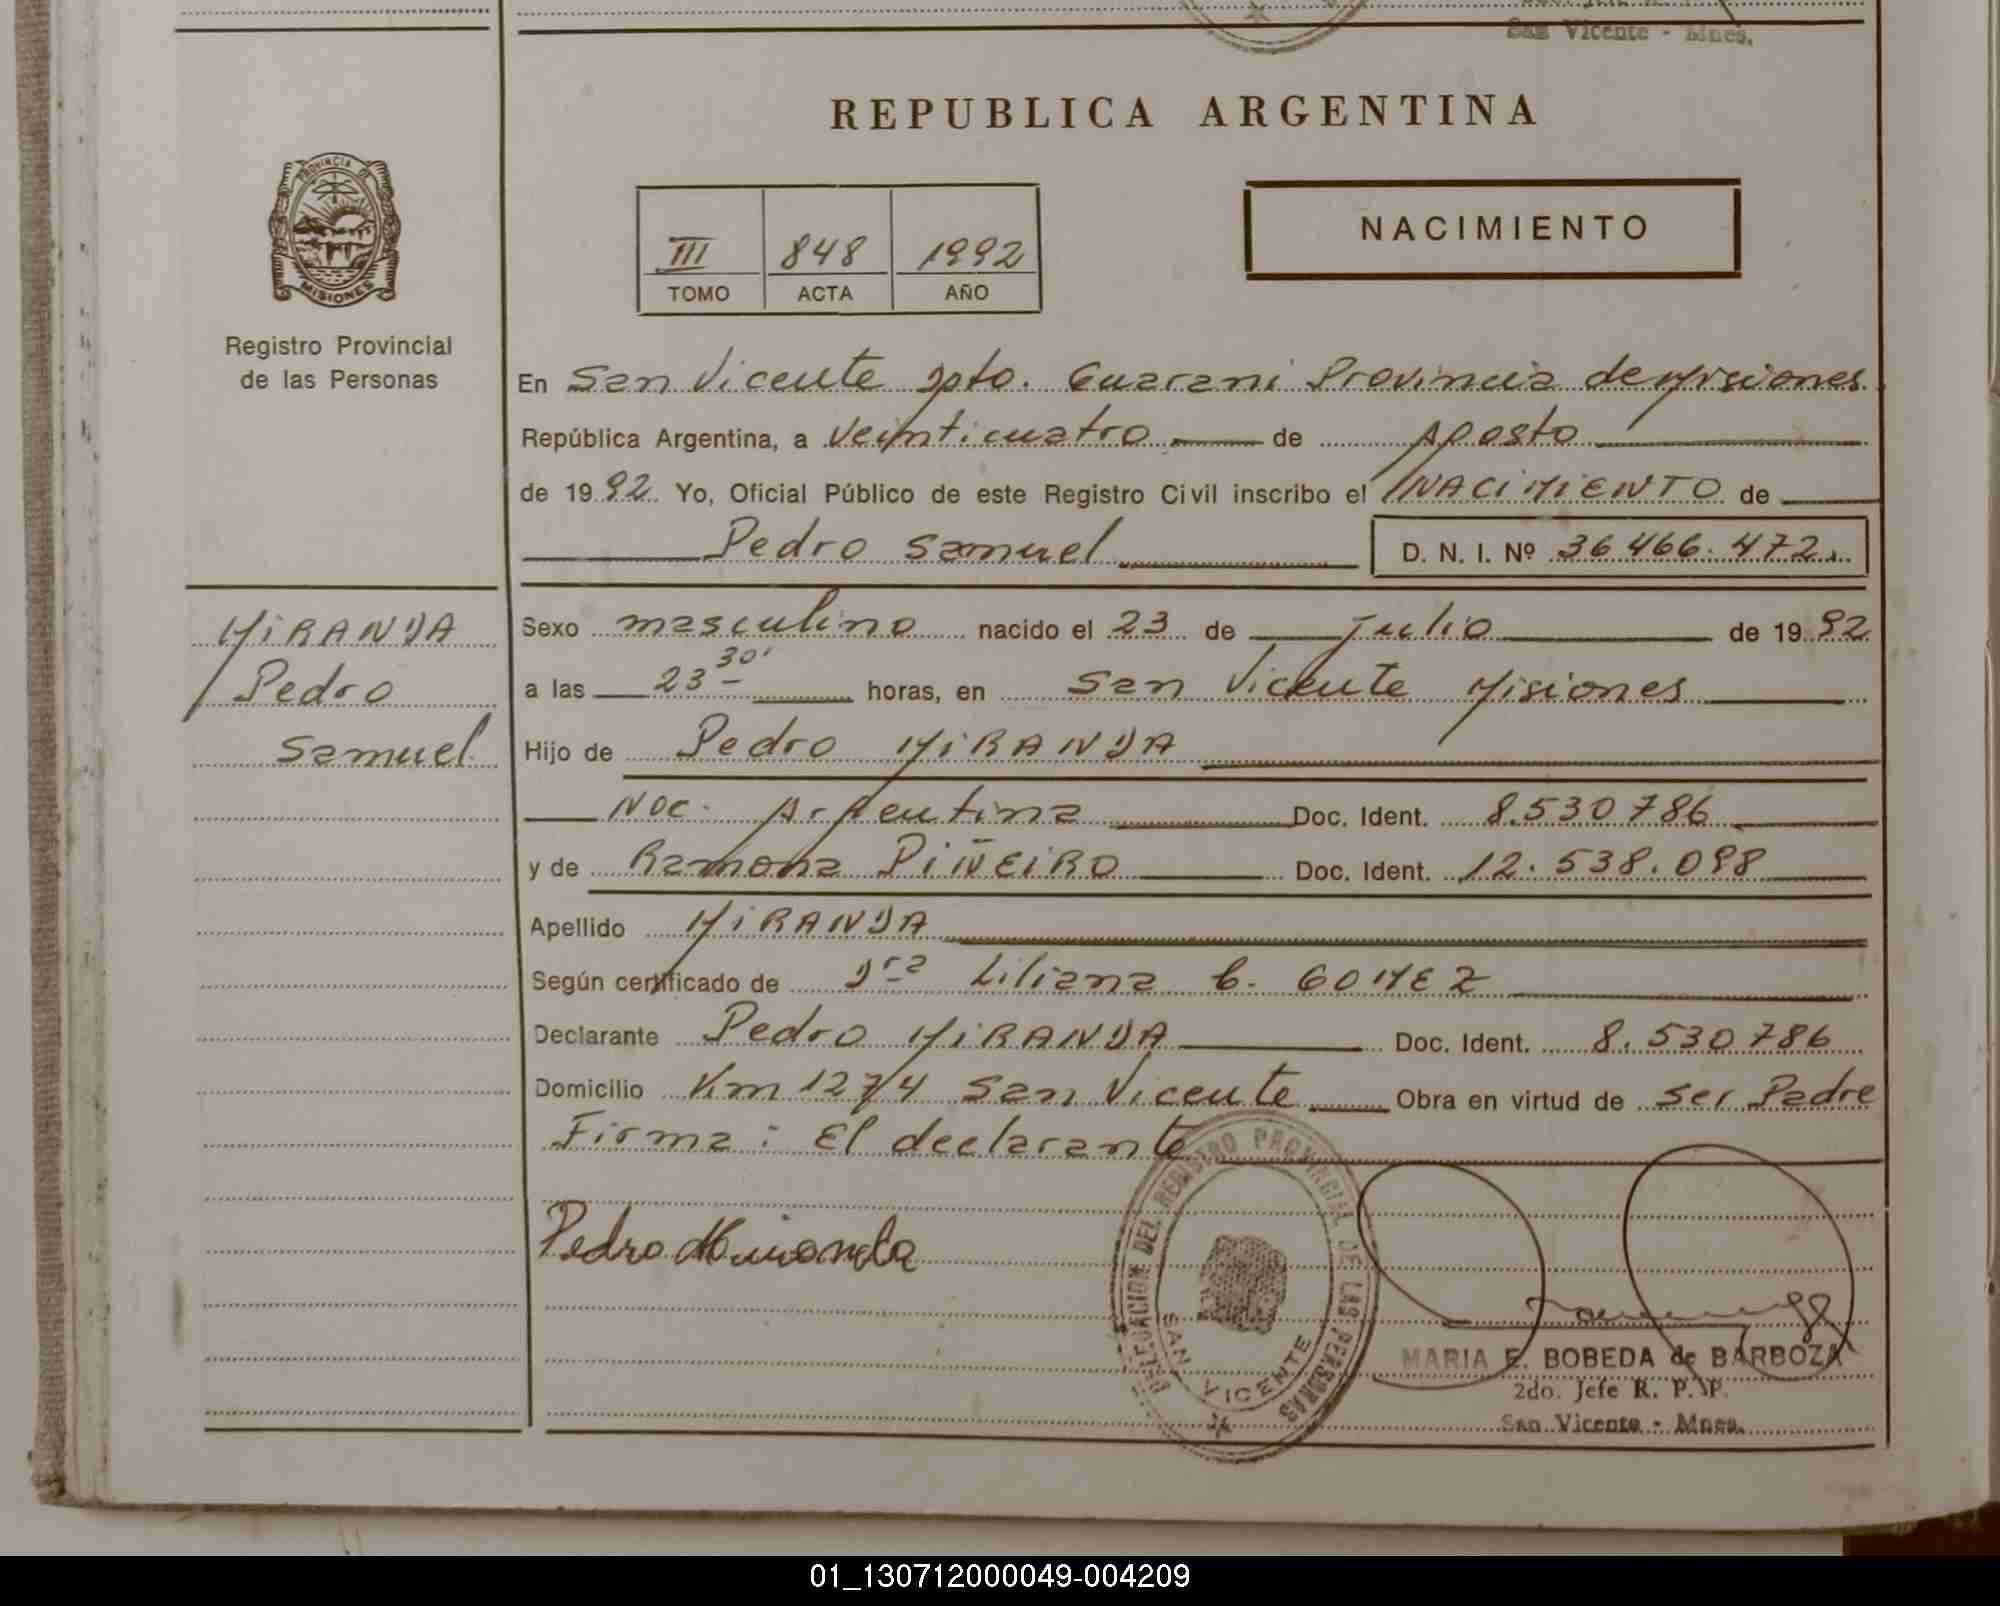 San Vicente - Mnes.
REPUBLICA ARGENTINA
PROVINCIA DE
MISIONES
NACIMIENTO
III 848 1992
TOMO ACTA AÑO
Registro Provincial
de las Personas
En San Vicente Dpto. Guarani Provincia de Misiones
República Argentina, a veinticuatro de Agosto
de 1992 Yo, Oficial Público de este Registro Civil inscribo el NACIMIENTO de
Pedro Samuel D. N. I. Nº 36.466.472.
MIRANDA
Pedro
Samuel
Sexo masculino nacido el 23 de Julio de 1992
a las 23 30' horas, en San Vicente Misiones
Hijo de Pedro MIRANDA
Nac. Argentina Doc. Ident. 8.530786
y de Ramona PIÑEIRO Doc. Ident. 12.538.098
Apellido MIRANDA
Según certificado de Dra Liliana C. GOMEZ
Declarante Pedro MIRANDA Doc. Ident. 8.530786
Domicilio Km 1274 San Vicente Obra en virtud de ser Padre
Firma: El declarante
Pedro Miranda
DELEGACION DEL REGISTRO PROVINCIAL DE LAS PERSONAS
SAN VICENTE
MARIA E. BOBEDA de BARBOZA
2do. Jefe R. P. P.
San Vicente - Mnes.
01_130712000049-004209